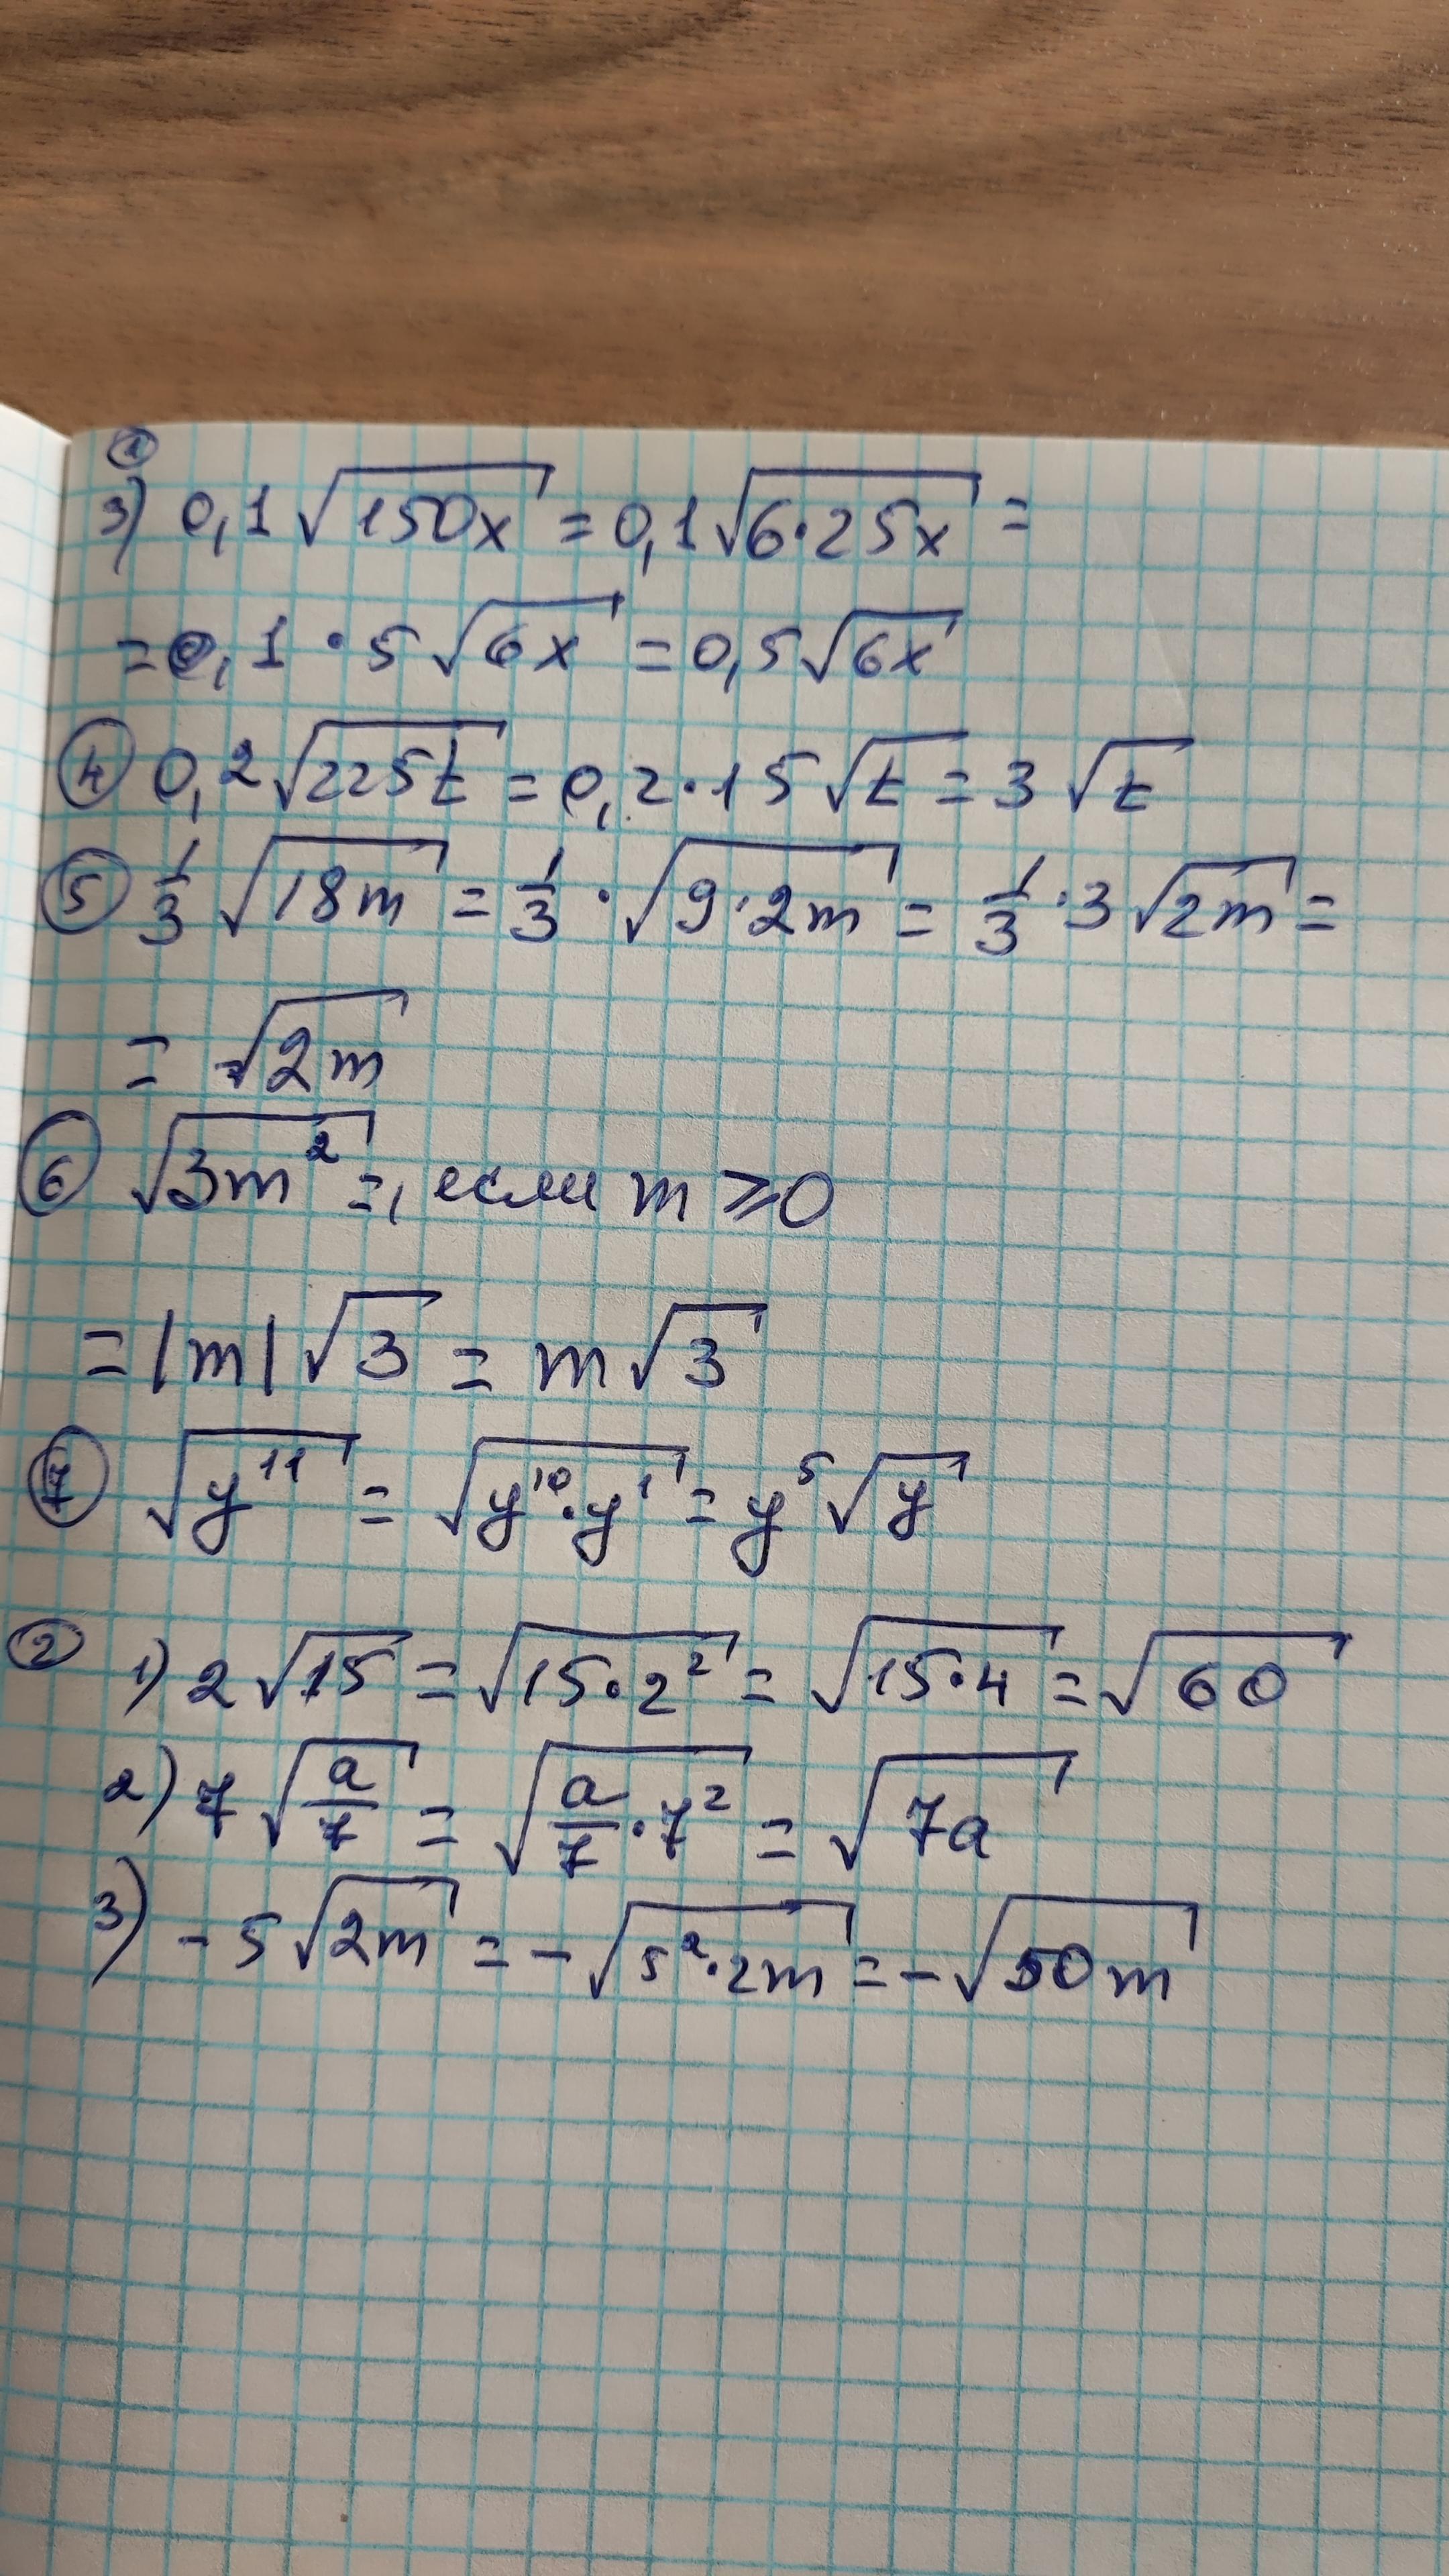 ①
3) 0,1√150x = 0,1√6·25x =
= 0,1·5√6x = 0,5√6x
④ 0,2√225t = 0,2·15√t = 3√t
⑤ 1/3 √18m = 1/3 · √9·2m = 1/3 · 3√2m =
= √2m
⑥ √3m² =, если m ⩾ 0
= |m|√3 = m√3
⑦ √y¹¹ = √y¹⁰·y¹ = y⁵√y
② 1) 2√15 = √15·2² = √15·4 = √60
2) 7√a/7 = √a/7·7² = √7a
3) -5√2m = -√5²·2m = -√50m